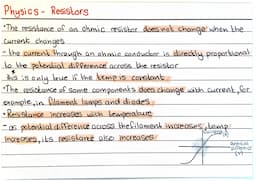 Physics - Resistors
•The resistance of an ohmic resistor does not change when the
current changes
- the current through an ohmic conductor is directly proportional
to the potential difference across the resistor
this is only true if the temp is constant
•The resistance of some components does change with current, for
example, in filament lamps and diodes
•Resistance increases with temperature
- as potential difference across the filament increases, temp
increases, its resistance also increases
potential
difference
(V)